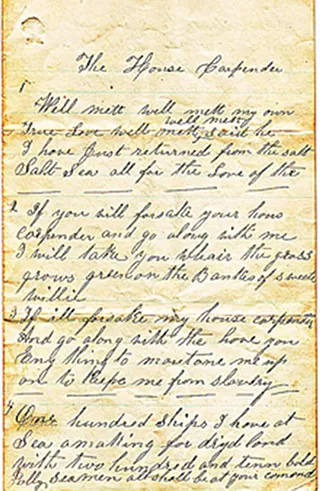 The House Carpender
1
Will mett well mett my own
well mett
True Love well mett said he
I have Just returned from the salt
Salt Sea all for the Love of the
2 If you will forsake your hous
carpender and go along with me
I will take you wheair the grass
grows green on the Bankes of sweete
willie
3 If ill forsake my house carpenter
And go along with the have you
Eny thing to maintane me up
on to Keepe me from slavery
4
One hundred Ships I have at
Sea amaking for dryd land
with two hundred and tenn bold
Jolly seamen all shall be at your comand